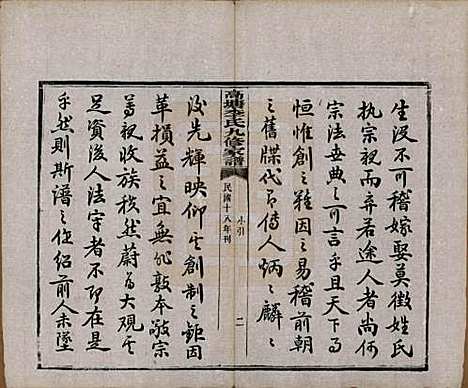 生沒不可稽嫁娶莫徵姓氏
執宗視而弃若途人者尚何
宗法世典之可言乎且天下事
恒惟創之難因之易稽前朝
之舊牒代不傳人炳之麟之
高塘李氏九修家譜
小引
二
民國十八年刊
後先輝映仰其創制之鉅因
革損益之宜無非敦本敬宗
善視收族秩然蔚為大觀其
足資後人法守者不即在是
乎然則斯譜之作紹前人未墜